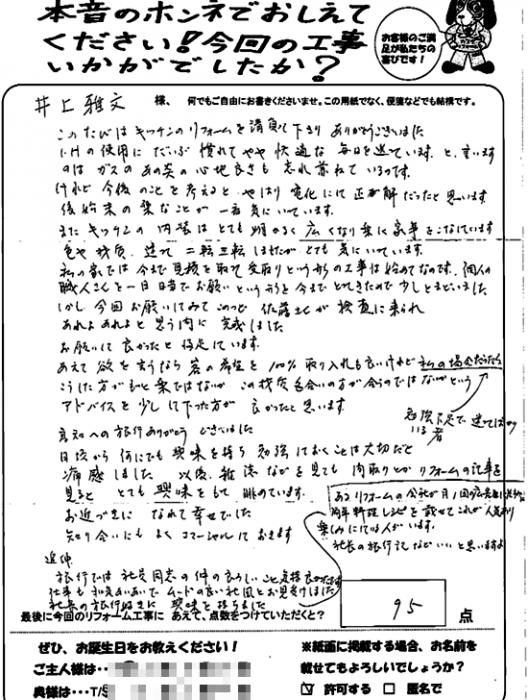 本音のホンネでおしえて
ください！今回の工事
いかがでしたか？
お客様のご満
足が私たちの
喜びです！
井上雅文 様、 何でもご自由にお書きくださいませ。この用紙でなく、便箋などでも結構です。
このたびはキッチンのリフォームを請負て下さりありがとうございました
の使用にだいぶ慣れてやや快適な毎日を送っています。と、言います
のはガスのあの炎の心地良さも忘れ兼ねているのです。
けれど今後のことを考えると、やはり電化にして正解だったと思います
後始末の楽なことが一番気にいっています。
またキッチンの内装はとても明るく広くなり楽に家事をこなせています
色や材質、迷って二転三転しましたがとても気にいっています。
私の家では今まで見積を取って受取りという形の工事は始めてなので、個人の
職人さんを一日日当でお願いという形を今までとってきたので少しとまどいました
しかし今回お願いしてみて 佐藤 が検査に来られ
あれよあれよと思う内に完成しました
お願いして良かったと満足しています。
あえて欲を言うなら客の希望を100%取り入れも良いけれど私の場合だったら
こうした方がもっと楽ではないか この材質 合いの方が合うのではないかという
アドバイスを少しして下った方が良かったと思います。
勉強不足で迷ってばかり
いる者
への旅行ありがとうございました
日頃から何にでも興味を持ち勉強しておくことは大切だと
痛感しました 以後、雑誌などを見ても間取りとかリフォームの記事を
見るととても興味をもって眺めています。
お近づきになれて幸せでした
知り合いにもよくコマーシャルしておきます
あるリフォームの会社が月1回
料理レシピを載せてこれが人気あり
楽しみにしている人がいます。
社長の旅行記などいいと思いますよ
追伸
旅行では社員同志の仲の良らしいこと
仕事も和気あいあいムードの良い社風とお見受けしました
社長の旅行好きに興味を持ちました
最後に今回のリフォーム工事に あえて、点数をつけていただくと？
95 点
ぜひ、お誕生日をお教えください！
ご主人様は‥
奥様は‥T/S
※紙面に掲載する場合、お名前を
載せてもよろしいでしょうか？
☑ 許可する □ 匿名で